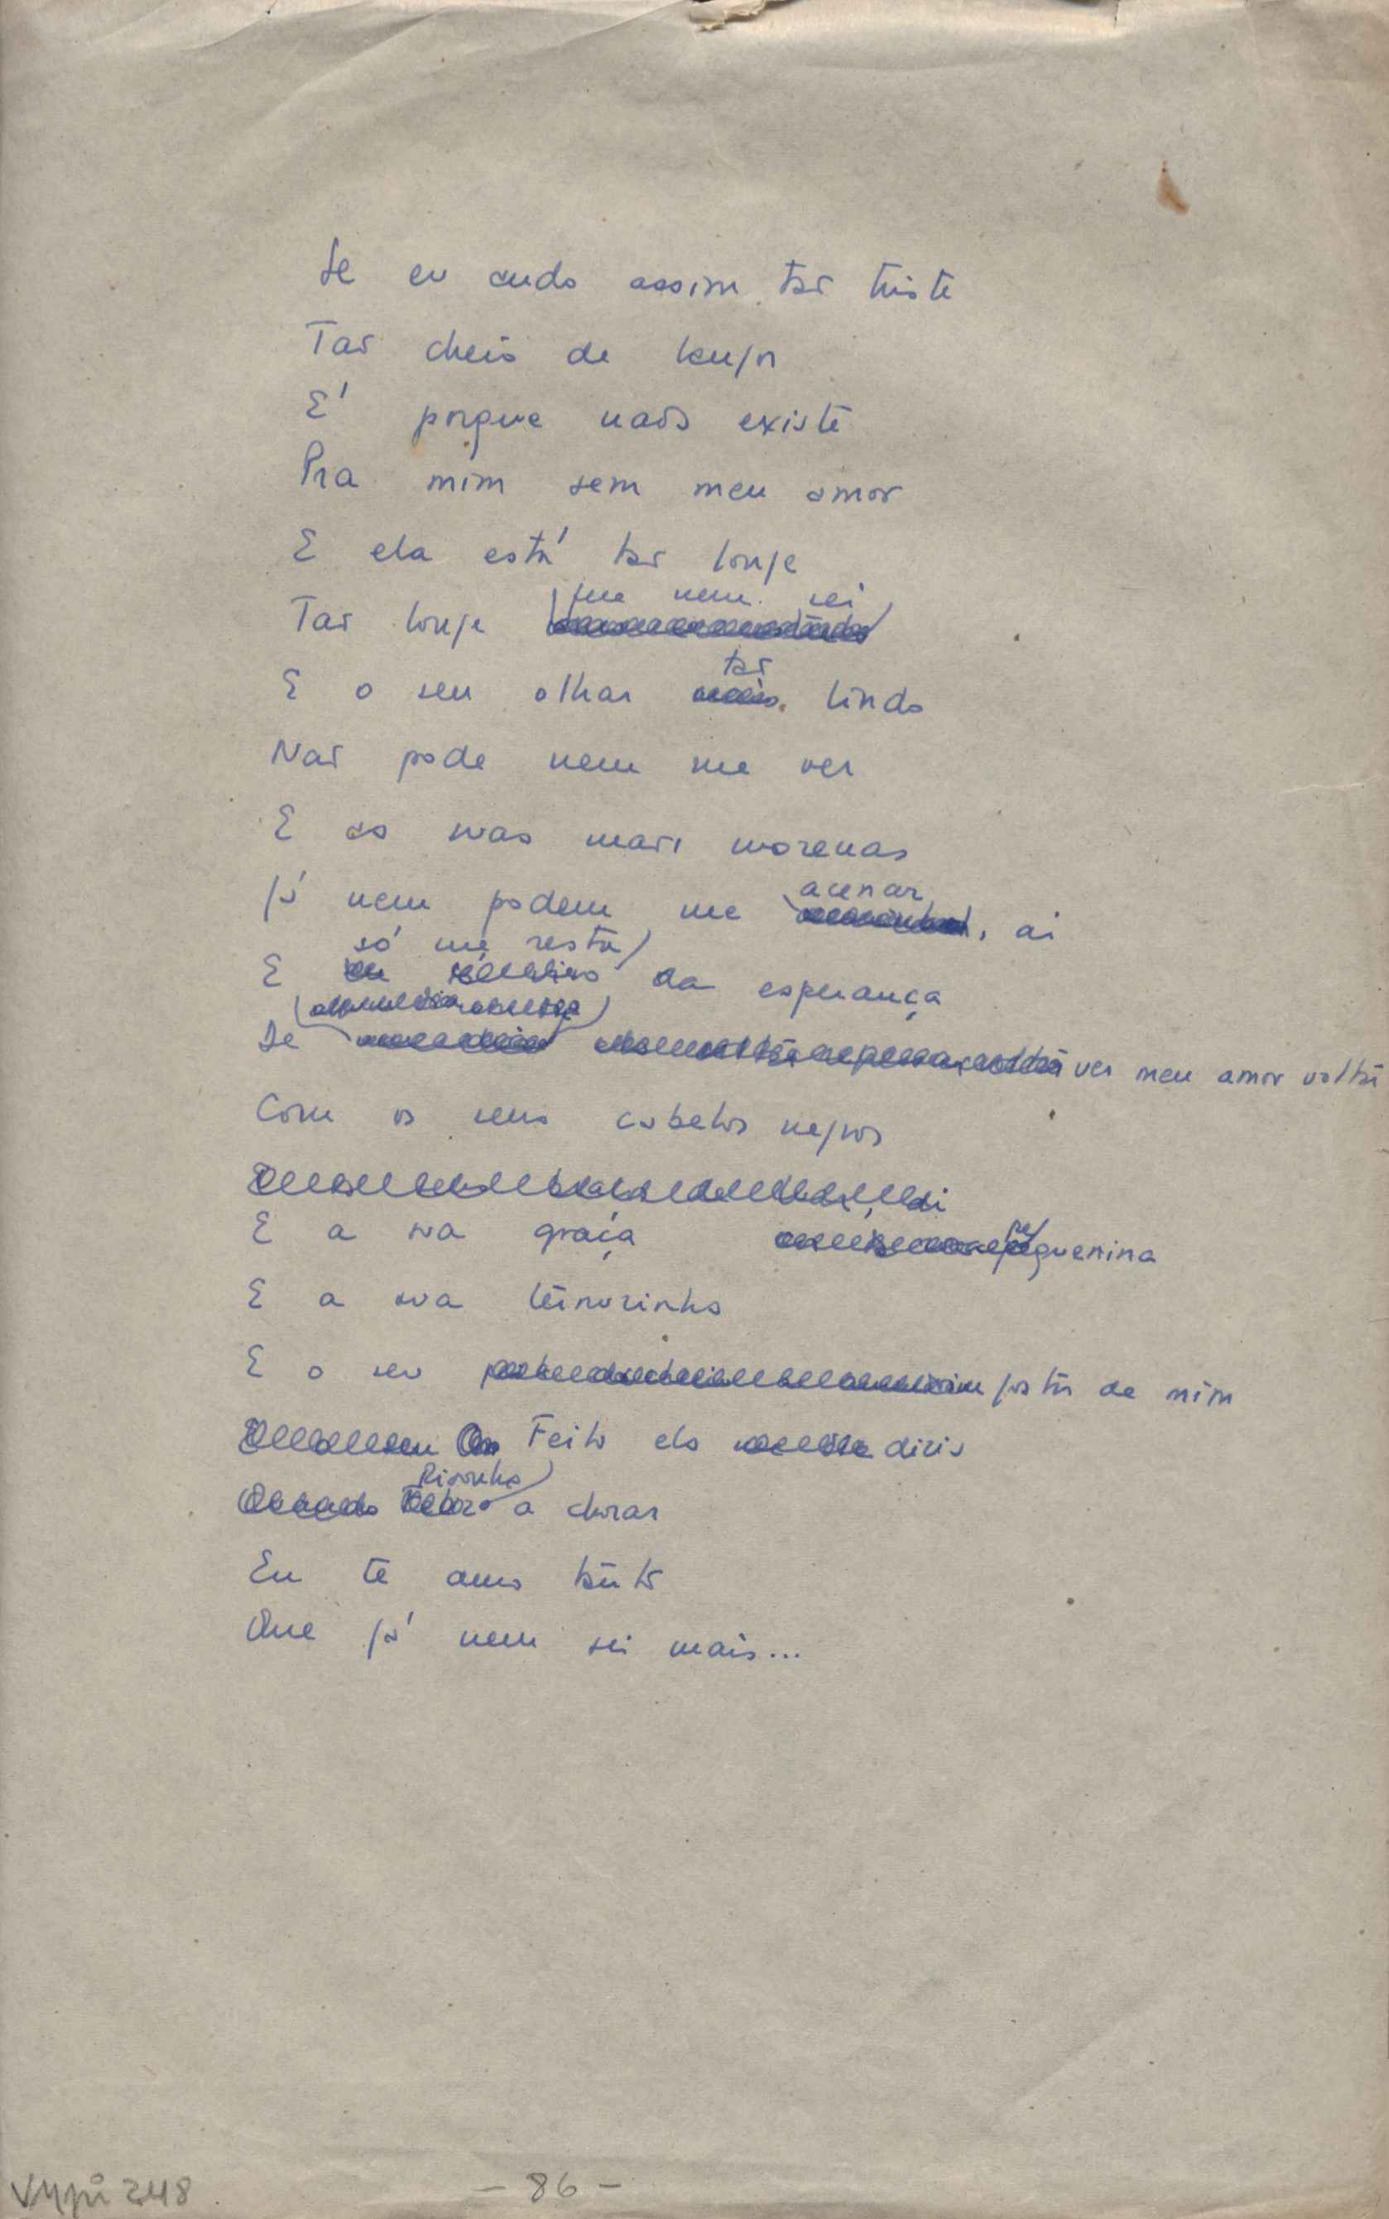 Se eu ando assim tão triste
Tão cheio de langor
É porque nada existe
Pra mim sem meu amor
E ela está tão longe
que nem sei
Tão longe
tão
E o seu olhar lindo
Não pode nem me ver
E as suas mãos morenas
acenar
Já nem podem me , ai
só me resta
E a esperança
De ver meu amor voltar
Com os seus cabelos negros
E a sua graça pequenina
E a sua ternurinha
E o seu gostar de mim
Feito ela diria
Risonha
a chorar
Eu te amo tanto
Que já nem sei mais...
- 86 -